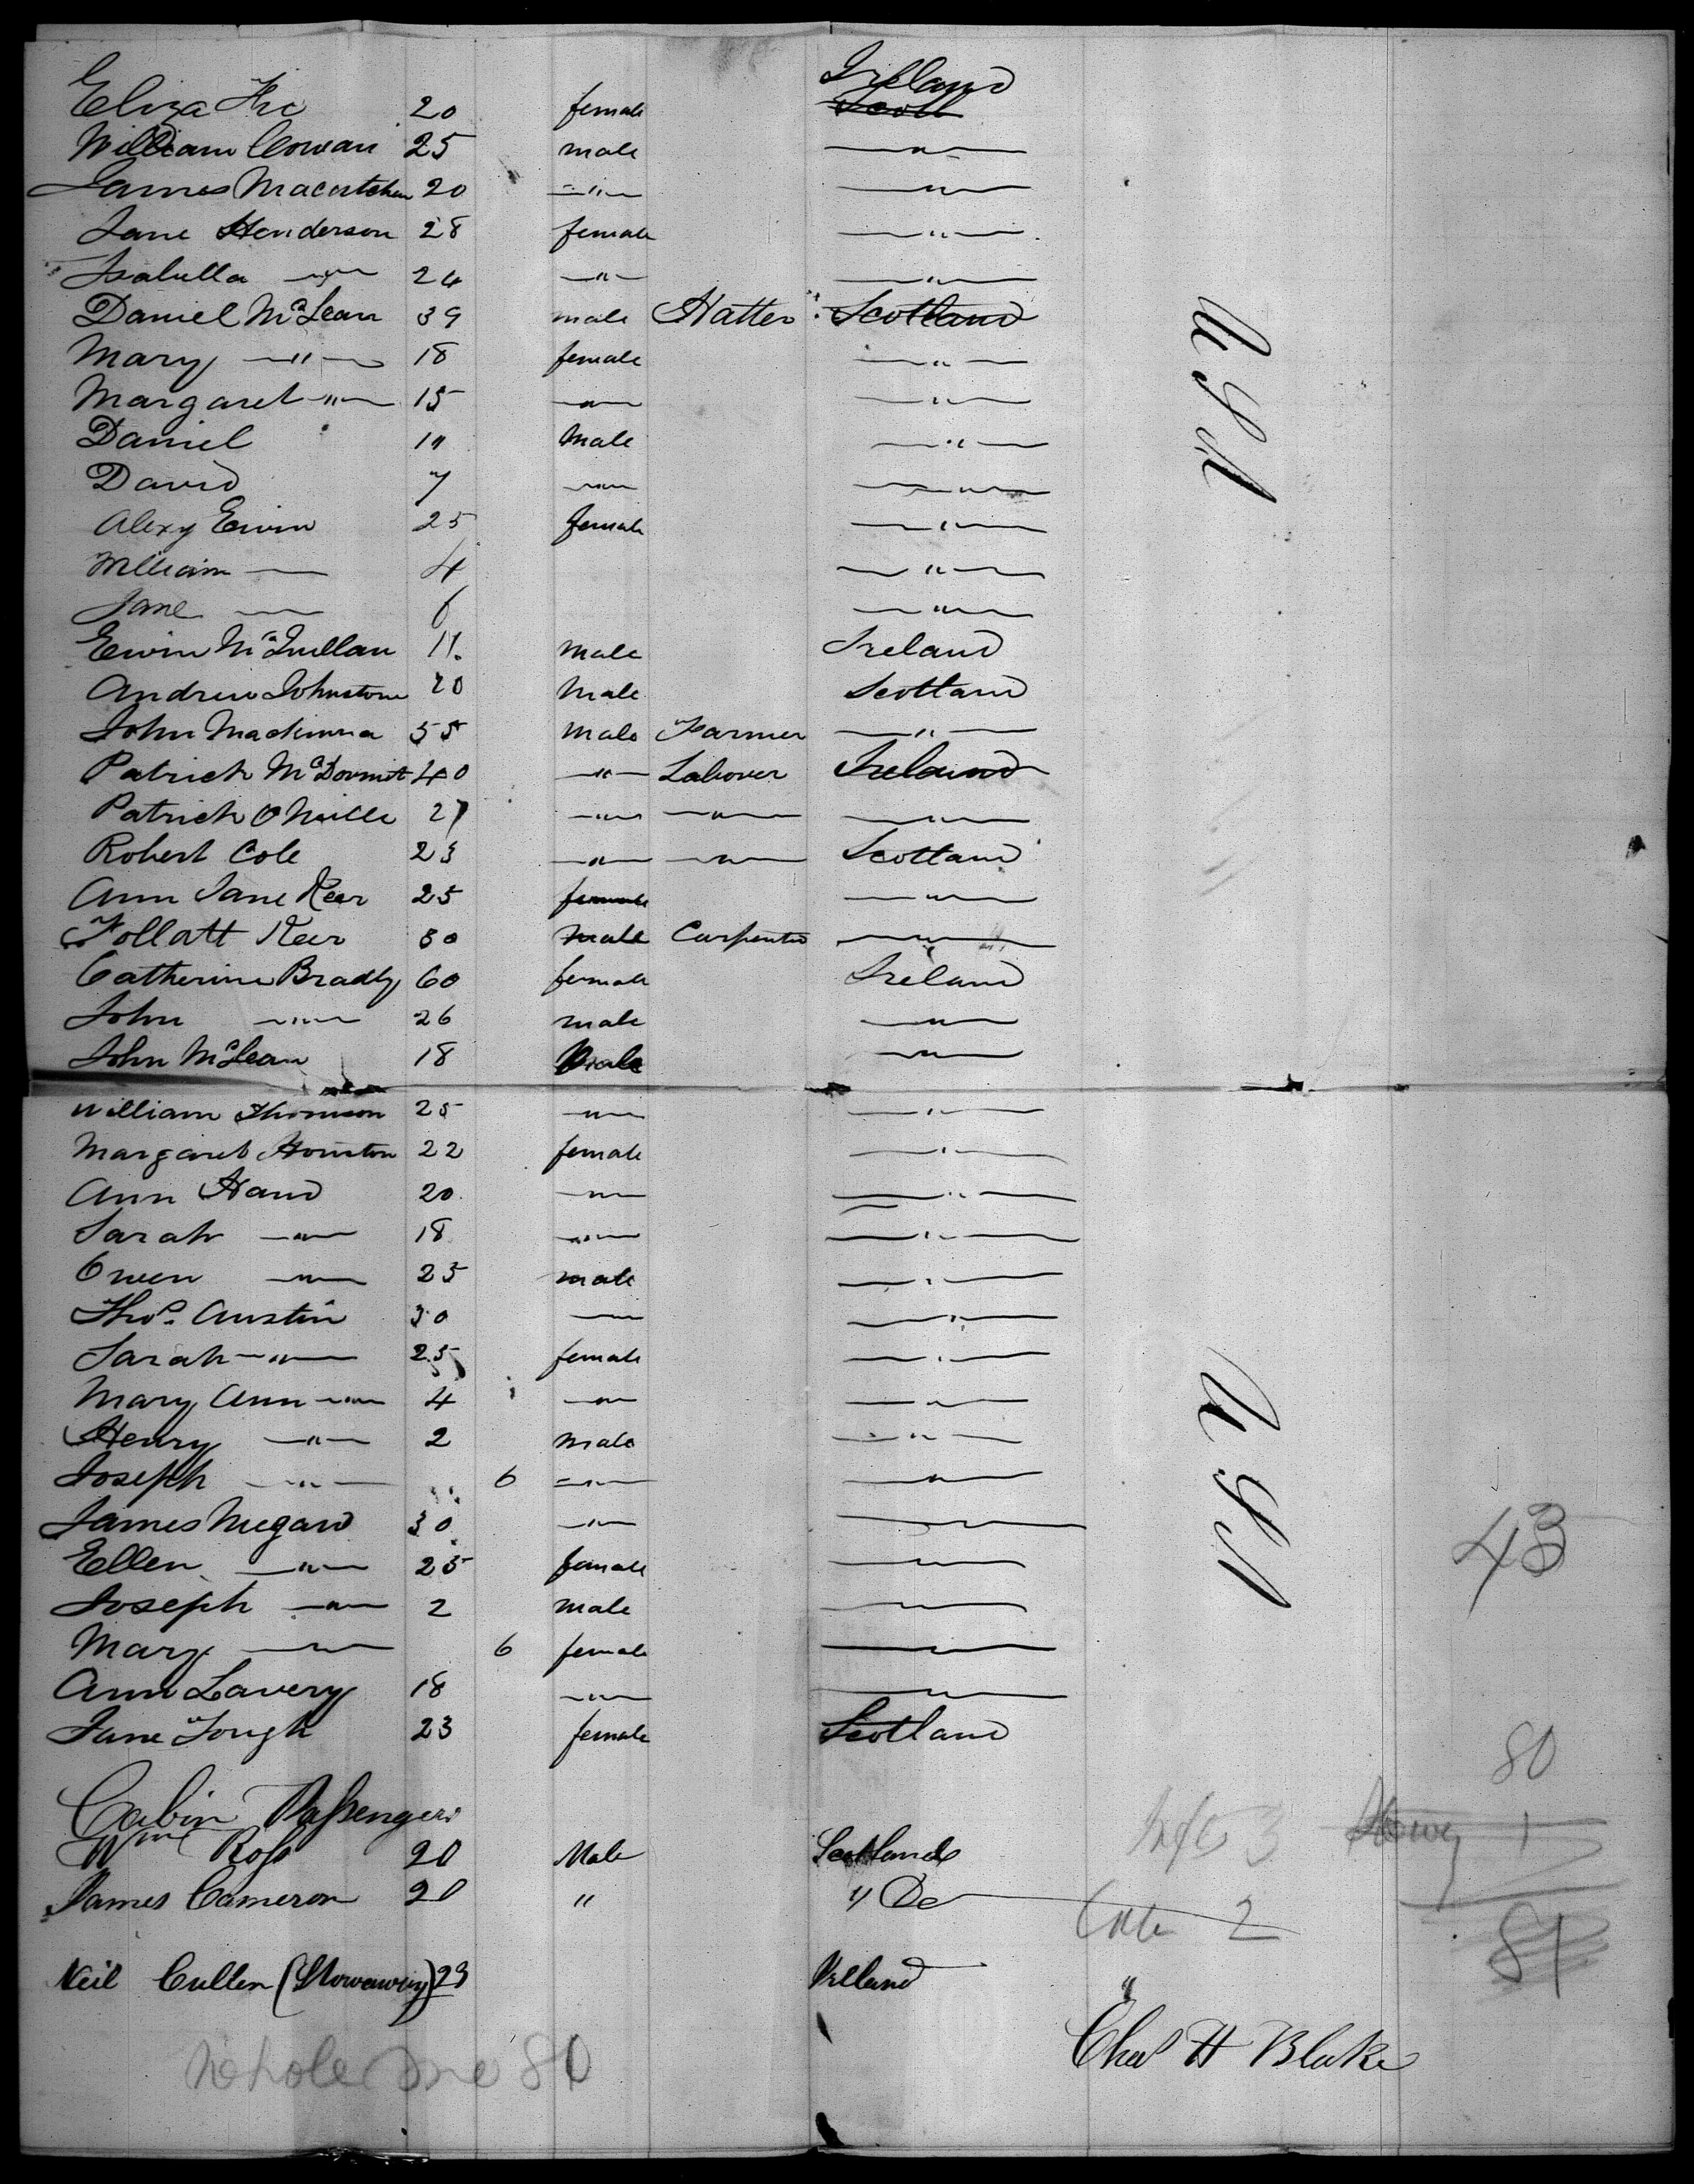 Ireland
Eliza 20 female Scotl
William Cowan 25 male — " —
James Macutchen 20 — " — — " —
Jane Henderson 28 female — " —
Isabella — " — 24 — " — — " —
Daniel McLean 39 male Hatter Scotland
Mary — " — 18 female — " —
Margaret — " — 15 — " — — " —
Daniel 11 Male — " —
David 7 — " — — " —
Alexy Erwin 25 female — " —
William — 4 — " —
Jane — 6 — " —
Erwin McQuillan 11. male Ireland
Andrew Johnstone 20 Male Scotland
John Mackinna 55 Male Farmer — " —
Patrick McDormit 40 — " — Labourer Ireland
Patrick O Neille 27 — " — — " — — " —
Robert Cole 23 — " — — " — Scotland
Ann Jane Keer 25 female — " —
Follatt Keer 30 Male Carpenter — " —
Catherine Bradly 60 female Ireland
John — " — 26 male — " —
John McLean 18 Male — " —
William Thomson 25 — " — — " —
Margaret Houston 22 female — " —
Ann Hand 20 — " — — " —
Sarah — " — 18 — " — — " —
Owen — " — 25 male — " —
Thos. Austin 30 — " — — " —
Sarah — " — 25 female — " —
Mary Ann — " — 4 — " — — " —
Henry — " — 2 male — " —
Joseph — " — 6 — " — — " —
James Megard 30 — " — — " —
Ellen — " — 25 female — " —
Joseph — " — 2 male — " —
Mary — " — 6 female — " —
Ann Lavery 18 — " — — " —
Jane Tough 23 female Scotland
U S A
U S A
43
80
Cabin Passengers
Wm Ross 20 Male Scotland
Infts 3 Stowy 1
James Cameron 20 " " Do
Cab 2
81
Neil Cullen (Stowaway) 23 Irland
Chas H Blake
Whole 81